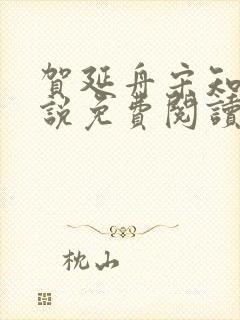 賀延舟宋知
說免費閱讀
枕山